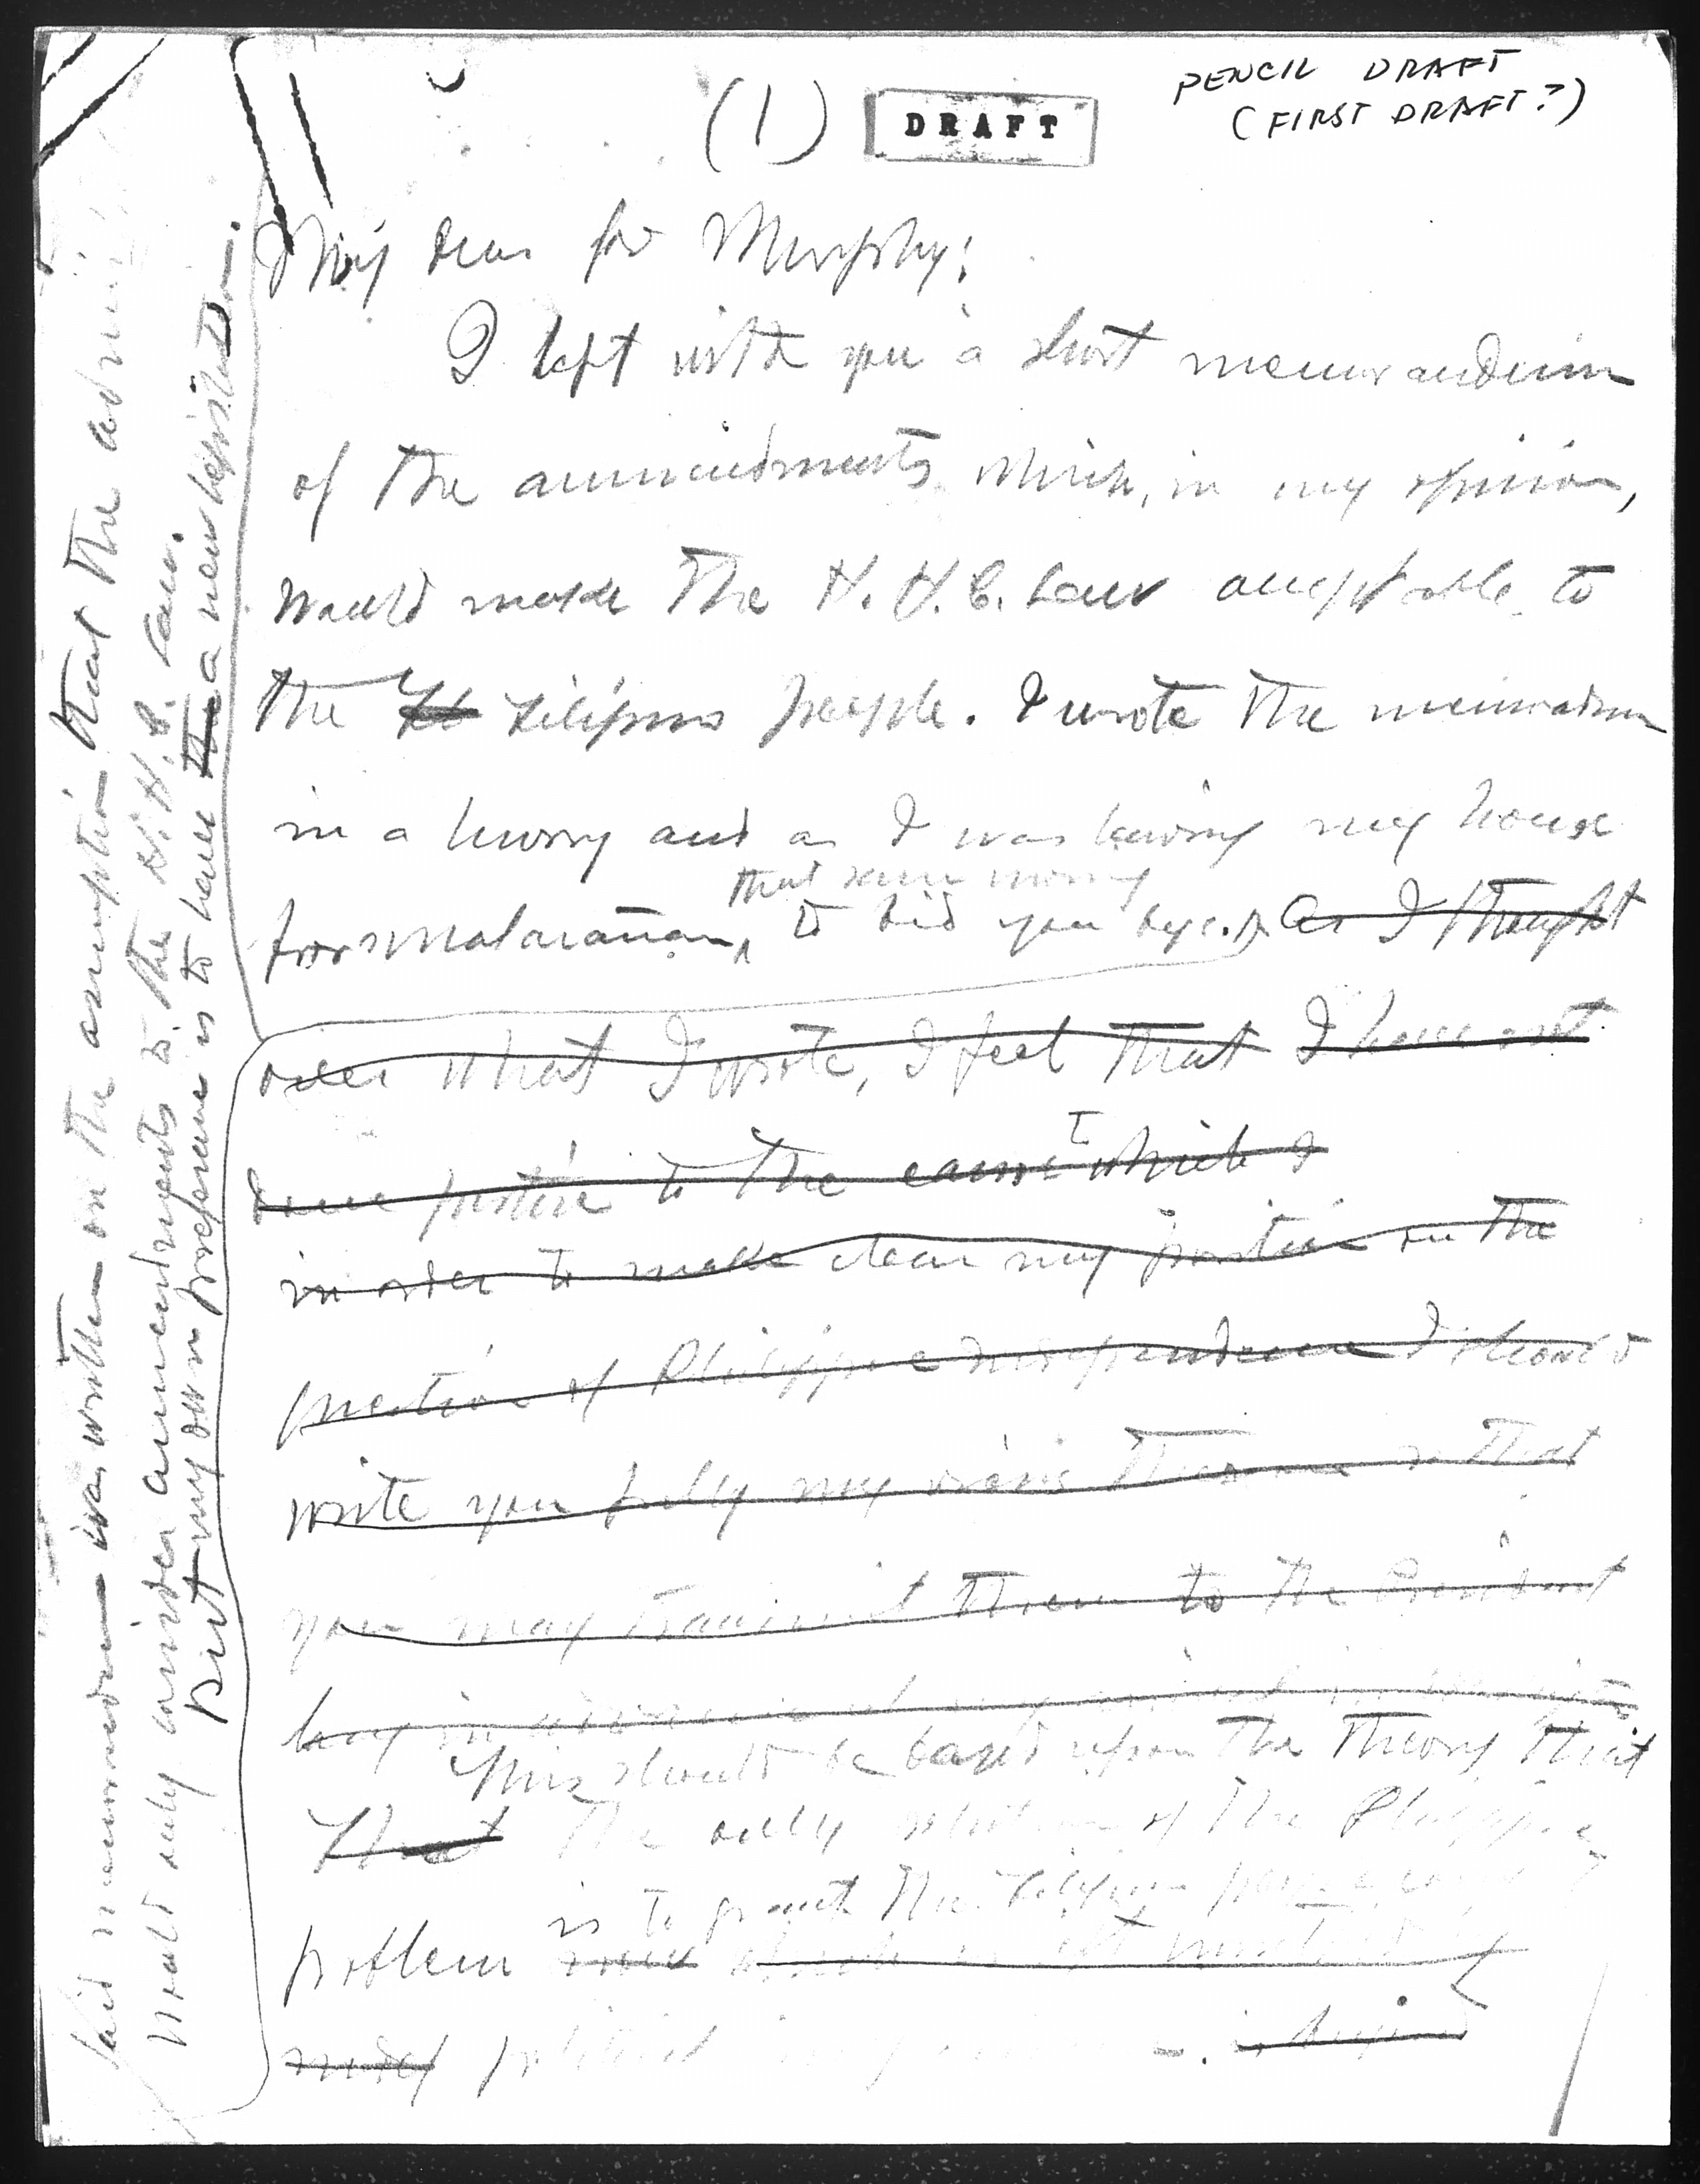 PENCIL DRAFT
(1) DRAFT (FIRST DRAFT?)
My dear Gov Murphy:
I left with you a short memorandum
of the ammendments which, in my opinion,
would make the H. H. C. Law acceptable to
the Filipino people. I wrote the memorandum
in a hurry and as I was leaving my house
that same morning
for Malacañan, to bid you bye. As I thought
over what I wrote, I feel that I have not
done justice to the cause which I
in order to make clear my position on the
question of Philippine Independence I should
write you fully my views thereon so that
you may transmit them to the President
This should be based upon the theory that
That the only solution of the Philippine
is to grant the Filipino
problem
political
said memorandum was written on the assumption that the
would only consider ammendments to the H. H. C. Law.
But my own preference is to have the a new legislation.